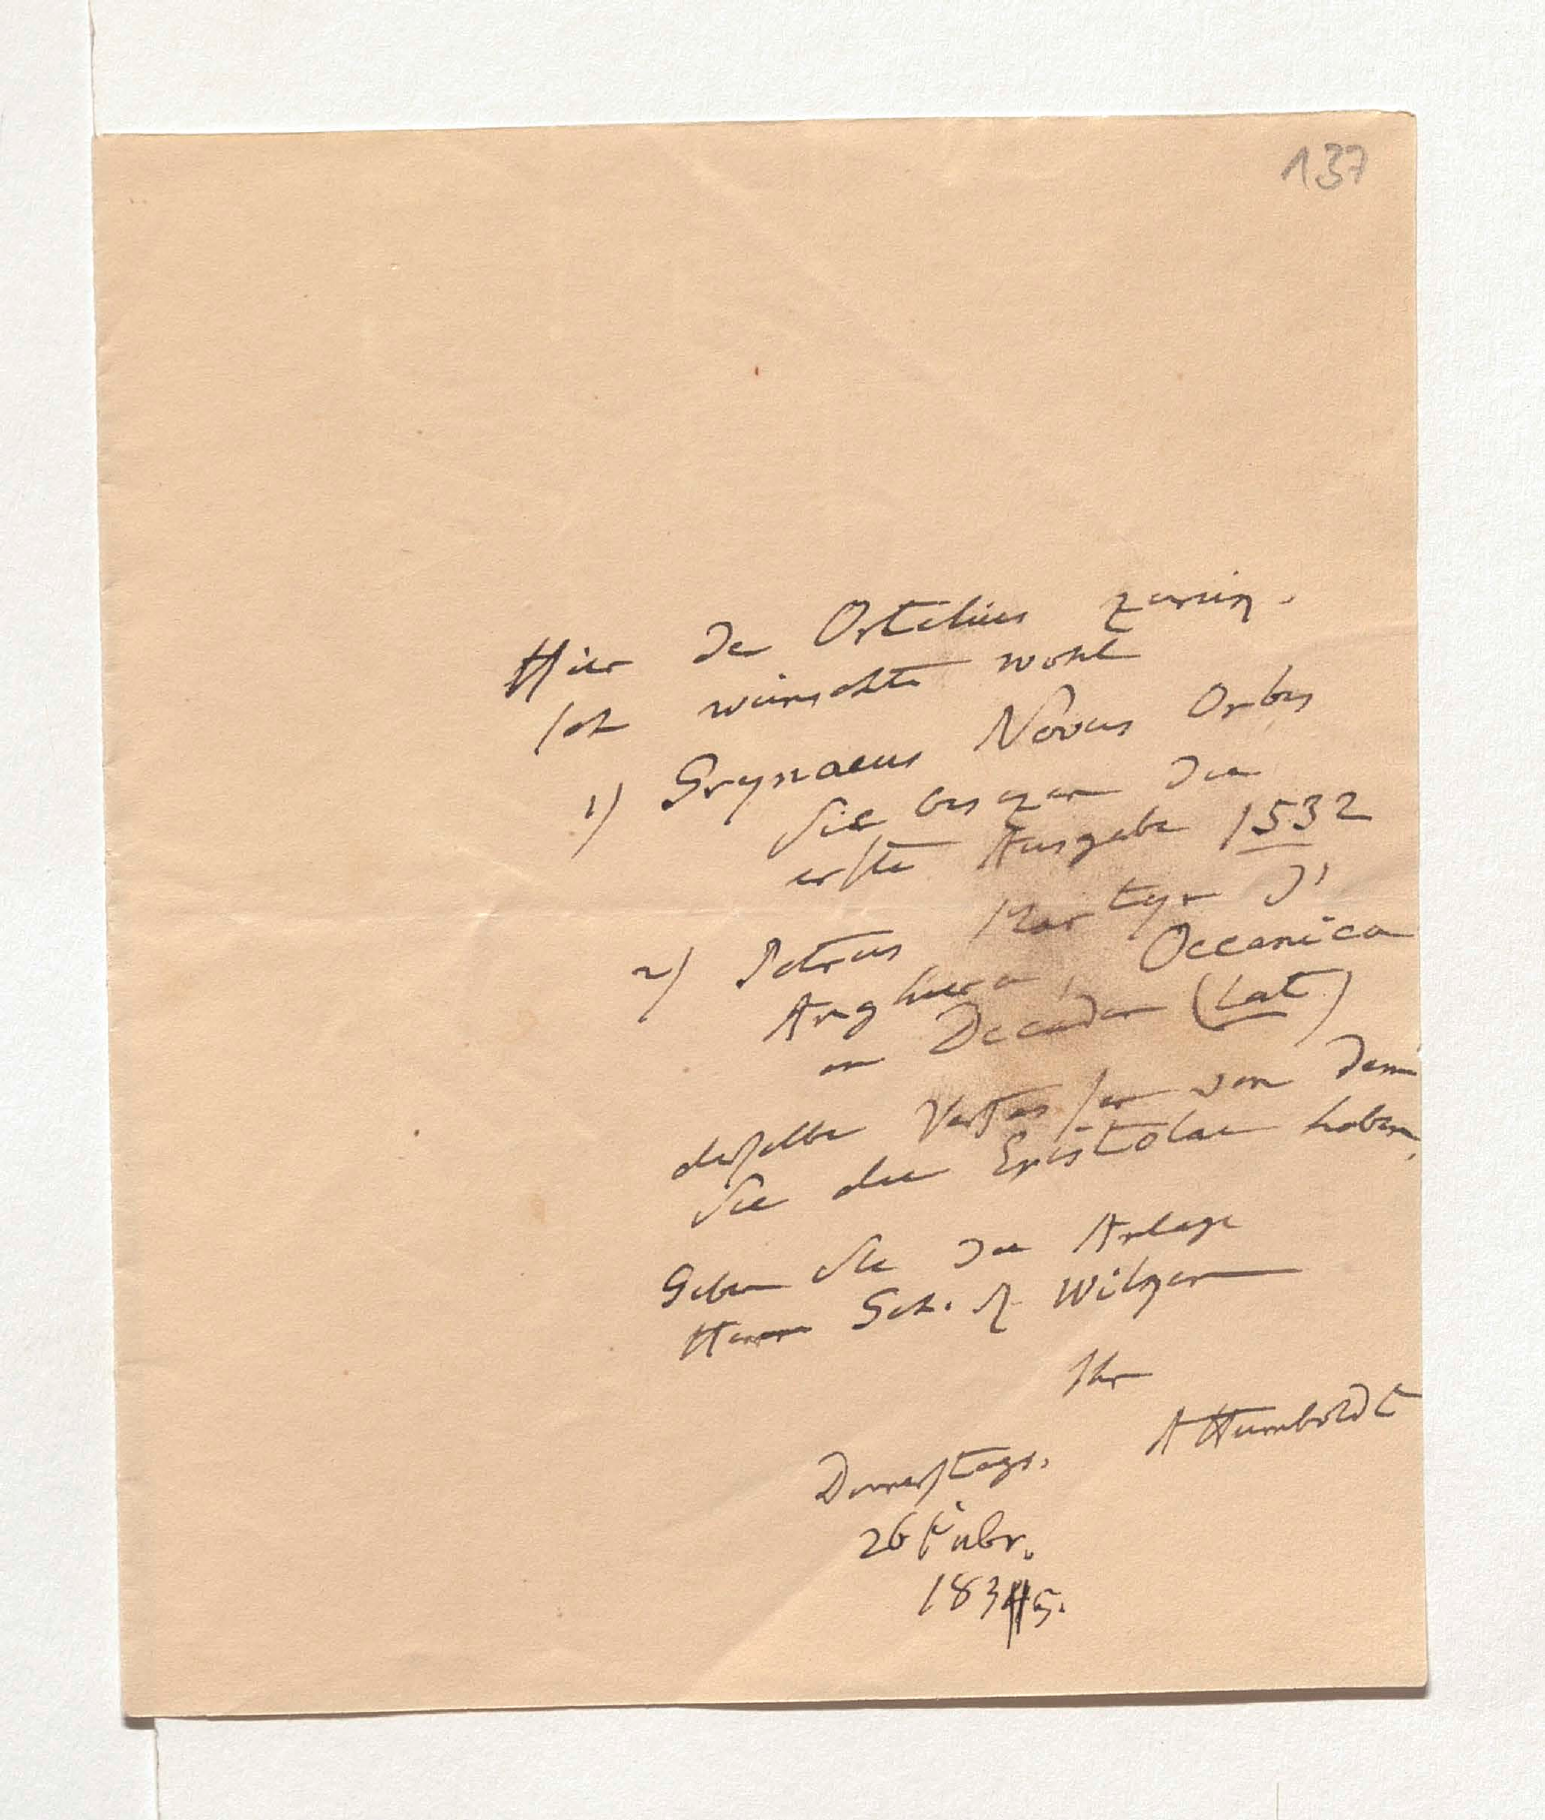 137
Hier den Ortelius zurük.
Ich wünschte wohl
1) Grynaeus Novus Orbis
Sie besizen die
erste Ausgabe 1532
2) Petrus Martyr d'
Anghiera, Oceanica
en Decaden (Lat)
derselbe Verfasser von dem
Sie die Epistolae haben.
Geben Sie die Anlage
Herrn Geh. R. Wilken
Ihr
AHumboldt
Donnerstags.
26 Febr.
1835.